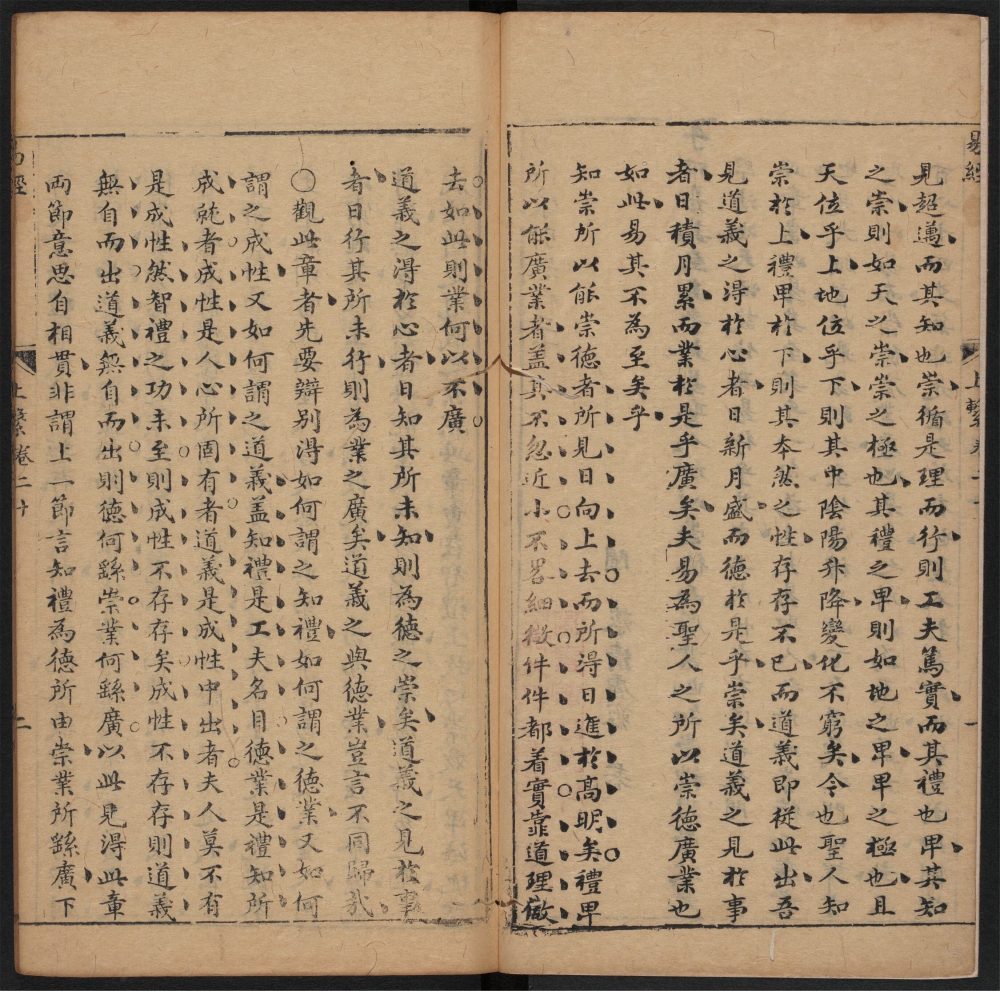 易經
上繫卷二十
一
見超邁而其知也崇循是理而行則工夫篤實而其禮也卑其知
之崇則如天之崇崇之極也其禮之卑則如地之卑卑之極也且
天位乎上地位乎下則其中陰陽升降變化不窮矣今也聖人知
崇於上禮卑於下則其本然之性存存不已而道義即從此出吾
見道義之得於心者日新月盛而德於是乎崇矣道義之見於事
者日積月累而業於是乎廣矣夫易為聖人之所以崇德廣業也
如此易其不為至矣乎
知崇所以能崇德者所見日向上去而所得日進於高明矣禮卑
所以能廣業者盖其不忽近小不畧細微件件都着實靠道理做
去如此則業何以不廣
道義之得於心者日知其所未知則為德之崇矣道義之見於事
者日行其所未行則為業之廣矣道義之與德業豈言不同歸哉
○觀此章者先要辯別得如何謂之知禮如何謂之德業又如何
謂之成性又如何謂之道義盖知禮是工夫名目德業是禮知所
成就者成性是人心所固有者道義是成性中出者夫人莫不有
是成性然智禮之功未至則成性不存存矣成性不存存則道義
無自而出道義無自而出則德何繇崇業何繇廣以此見得此章
兩節意思自相貫非謂上一節言知禮為德所由崇業所繇廣下
易經
上繫卷二十
二